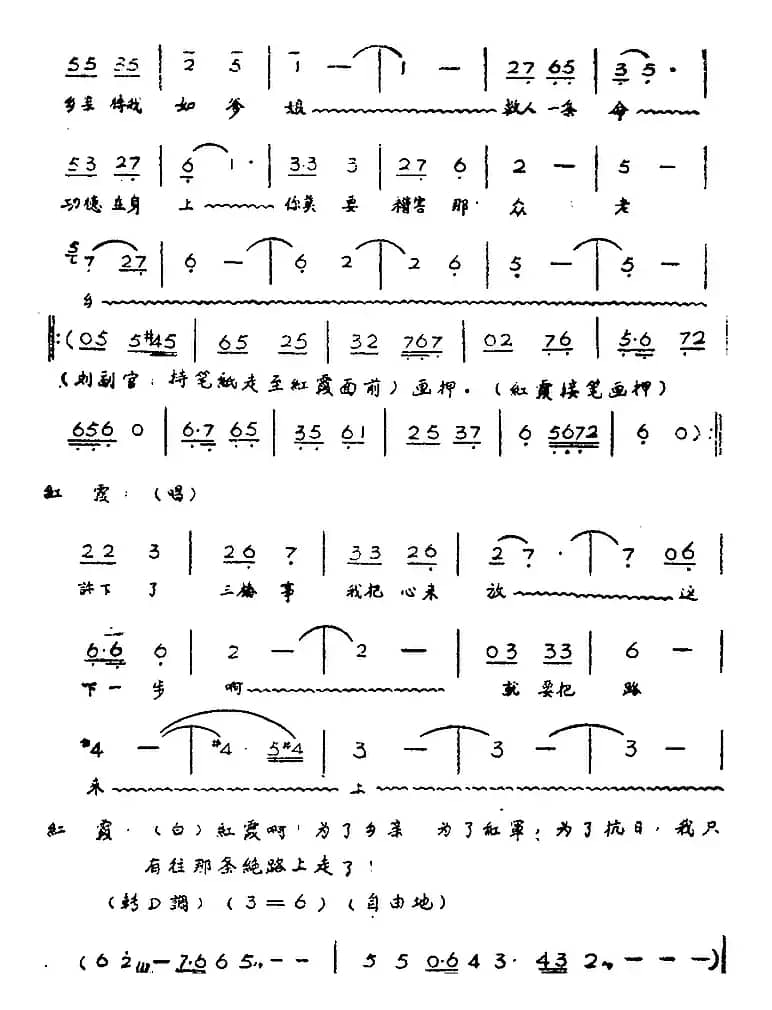 55 35 | 2 5 | 1 — | 1 — | 27 65 | 3 5 · |
乡亲待我 如爹 娘 救人一条 命
53 27 | 6 1 · | 3·3 3 | 27 6 | 2 — | 5 — |
功德在身 上 你莫 要 稽害 那 众 老
5 7 27 | 6 — | 6 2 | 2 6 | 5 — | 5 — |
乡
‖: (05 5#45 | 65 25 | 32 767 | 02 76 | 5·6 72 |
(刘副官:持笔紙走至紅霞面前)画押。(紅霞接笔画押)
656 0 | 6·7 65 | 35 61 | 25 37 | 6 5672 | 6 0) :‖
紅 霞:(唱)
22 3 | 26 7 | 33 26 | 2 7 · | 7 06 |
許下 了 三條 事 我把 心来 放 这
6·6 6 | 2 — | 2 — | 03 33 | 6 — |
下一 步 啊 就 要把 路
#4 — | #4 · 5#4 | 3 — | 3 — | 3 — |
来 上
紅 霞:(白)紅霞啊!为了乡亲 为了紅軍;为了抗日,我只
有往那条絶路上走了!
(轉D調)(3=6)(自由地)
(6 2 — 7·6 6 5 — — | 5 5 0·6 4 3· 43 2 — — —)